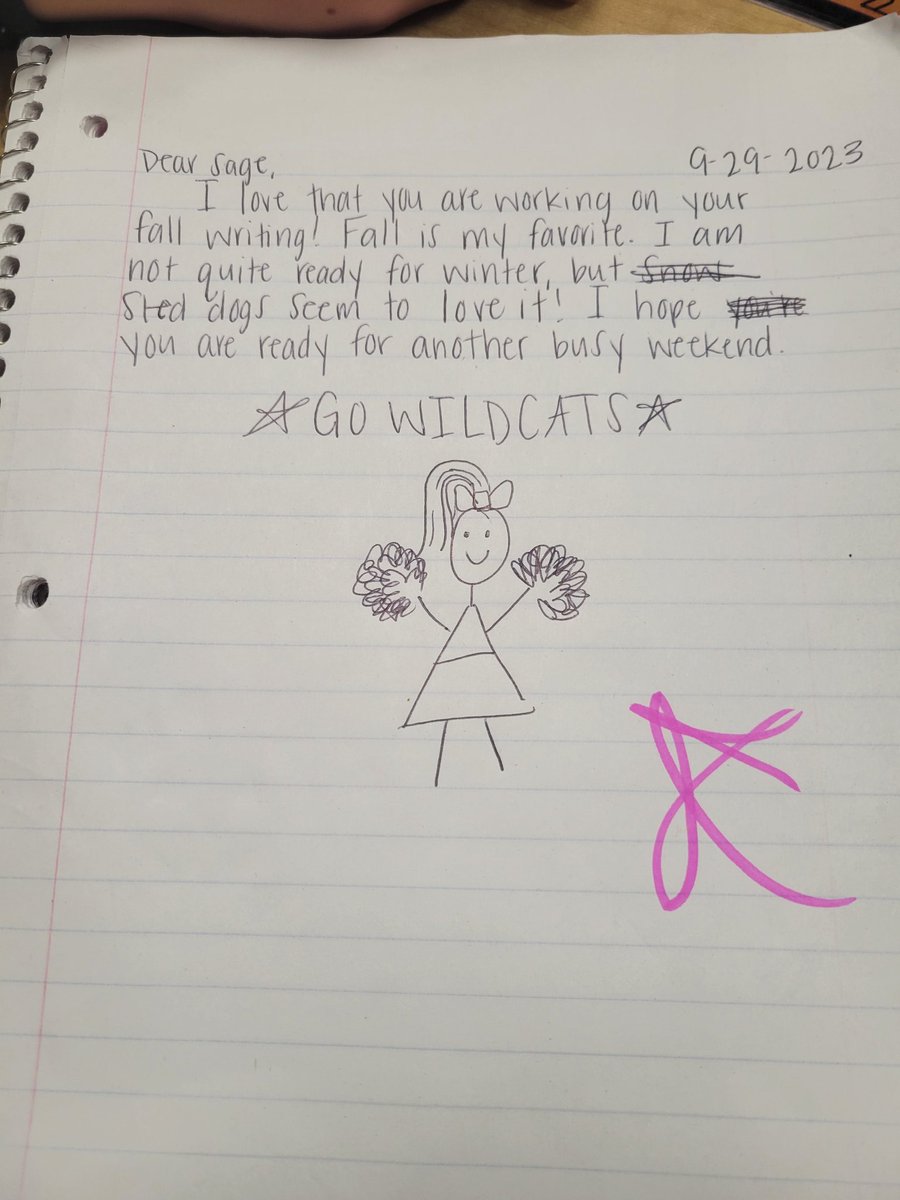 Dear Sage, 9-29-2023
I love that you are working on your
fall writing! Fall is my favorite. I am
not quite ready for winter, but snow
Sled dogs seem to love it! I hope you're
you are ready for another busy weekend.
☆GO WILDCATS☆